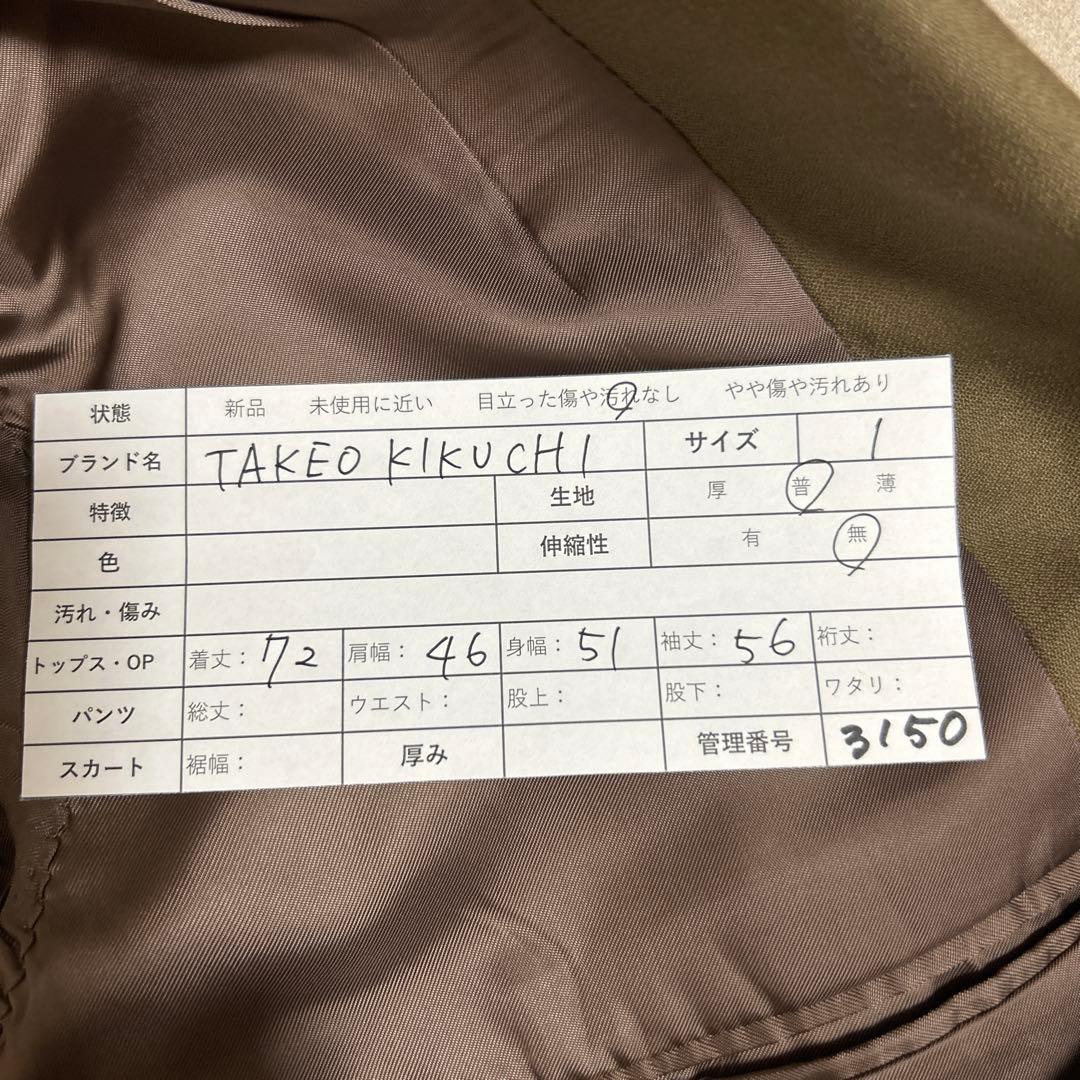 状態 新品 未使用に近い 目立った傷や汚れなし やや傷や汚れあり
ブランド名 TAKEO KIKUCHI サイズ 1
特徴 生地 厚 普 薄
色 伸縮性 有 無
汚れ・傷み
トップス・OP 着丈：72 肩幅：46 身幅：51 袖丈：56 裄丈：
パンツ 総丈： ウエスト： 股上： 股下： ワタリ：
スカート 裾幅： 厚み 管理番号 3150